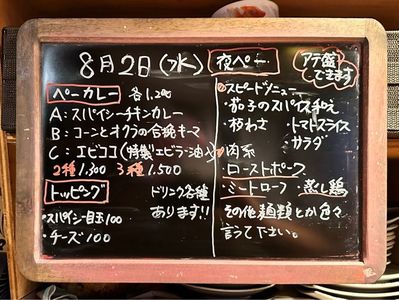 8月2日(水)
ペーカレー 各1,200
A:スパイシーチキンカレー
B:コーンとオクラの合挽キーマ
C:エビココ(特製エビラー油入)
2種1,300 3種1,500
トッピング
ドリンク各種
あります!!
・スパイシー目玉100
・チーズ100
夜ペー
アテ盛
できます
スピードメニュー
・茄子のスパイス和え
・枝わさ ・トマトスライス
サラダ
肉系
・ローストポーク
・ミートローフ ・蒸し鶏
その他麺類とか色々
言って下さい。